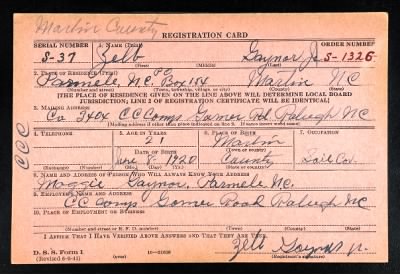 Martin County
REGISTRATION CARD
SERIAL NUMBER 1. NAME (Print) ORDER NUMBER
S-37 Zelb Gaynor Jr S-1326
(First) (Middle) (Last)
2. PLACE OF RESIDENCE (Print)
Parmele N.C. Box 154 Martin NC
(Number and street) (Town, township, village, or city) (County) (State)
[THE PLACE OF RESIDENCE GIVEN ON THE LINE ABOVE WILL DETERMINE LOCAL BOARD
JURISDICTION; LINE 2 OF REGISTRATION CERTIFICATE WILL BE IDENTICAL]
3. MAILING ADDRESS
Co 3404 CC Camp Garner Rd. Raleigh NC
[Mailing address if other than place indicated on line 2. If same insert word same]
4. TELEPHONE 5. AGE IN YEARS 6. PLACE OF BIRTH 7. OCCUPATION
21 Martin
DATE OF BIRTH (Town or county)
June 8, 1920 County Soil Cov.
(Exchange) (Number) (Mo.) (Day) (Yr.) (State or country)
CCC
8. NAME AND ADDRESS OF PERSON WHO WILL ALWAYS KNOW YOUR ADDRESS
Maggie Gaynor, Parmele NC.
9. EMPLOYER'S NAME AND ADDRESS
CC Camp Garner Road Raleigh NC
10. PLACE OF EMPLOYMENT OR BUSINESS
(Number and street or R. F. D. number) (Town) (County) (State)
I AFFIRM THAT I HAVE VERIFIED ABOVE ANSWERS AND THAT THEY ARE TRUE.
Zelb Gaynor Jr.
D. S. S. Form 1
(Revised 6-9-41) (Registrant's signature)